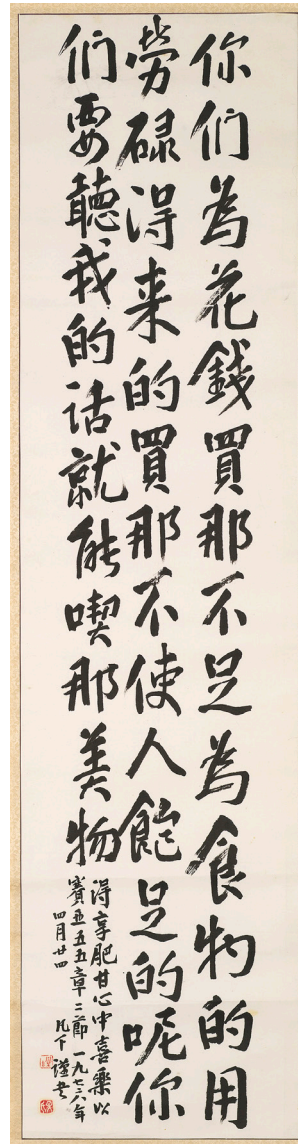 你们為花錢買那不足為食物的用
勞碌得来的買那不使人飽足的呢你
们要聽我的话就能喫那美物
得享肥甘心中喜樂以
賽亚五五章二節 一九七六年
四月廿四 謹书